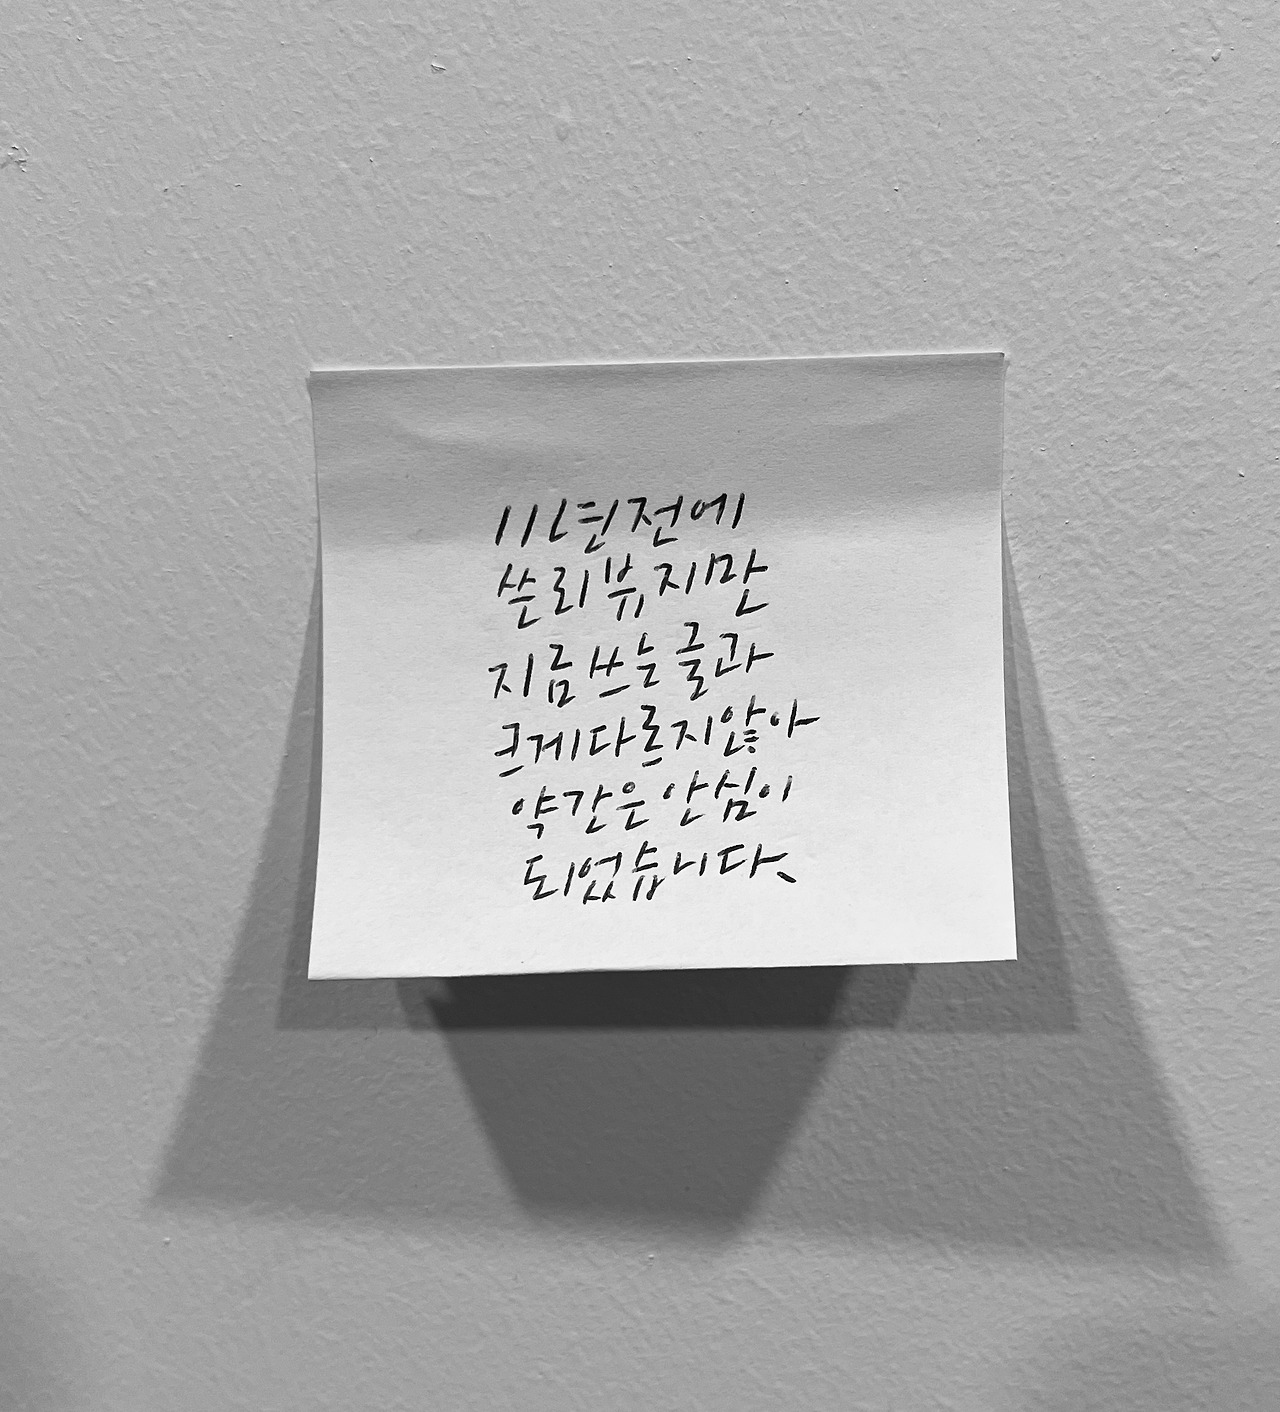 11년전에
쓴리뷰지만
지금쓰는글과
크게다르지않아
약간은안심이
되었습니다.